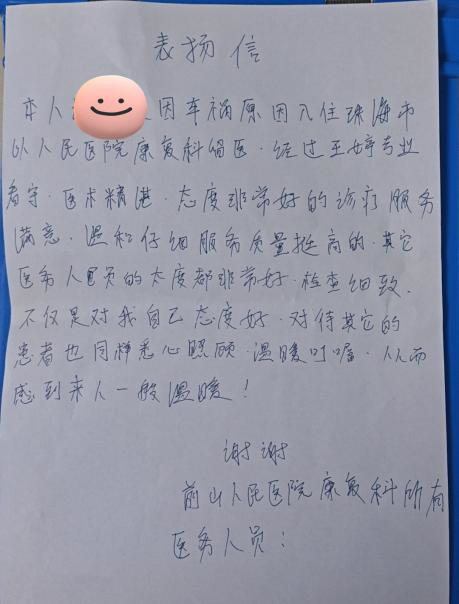 表扬信
本人因车祸原因入住珠海市
人民医院康复科留医．经过王婷专业
看守．医术精湛．态度非常好的诊疗服务
满意．温和仔细服务质量挺高的．其它
医务人员的太度都非常好．检查细致．
不仅是对我自己态度好．对待其它的
患者也同样悉心照顾．温暖叮嘱．从而
感到来人一般温暖！
谢谢
前山人民医院康复科所有
医务人员：